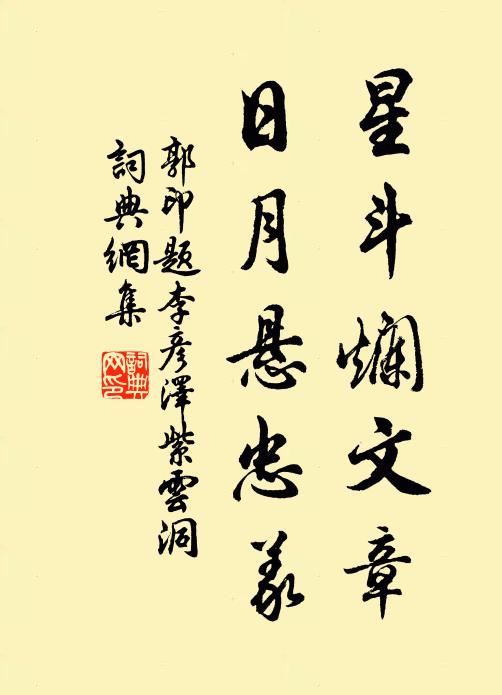 星斗爛文章
日月悬忠义
郭印题李彦澤紫雲洞
詞典網集
詞典网印